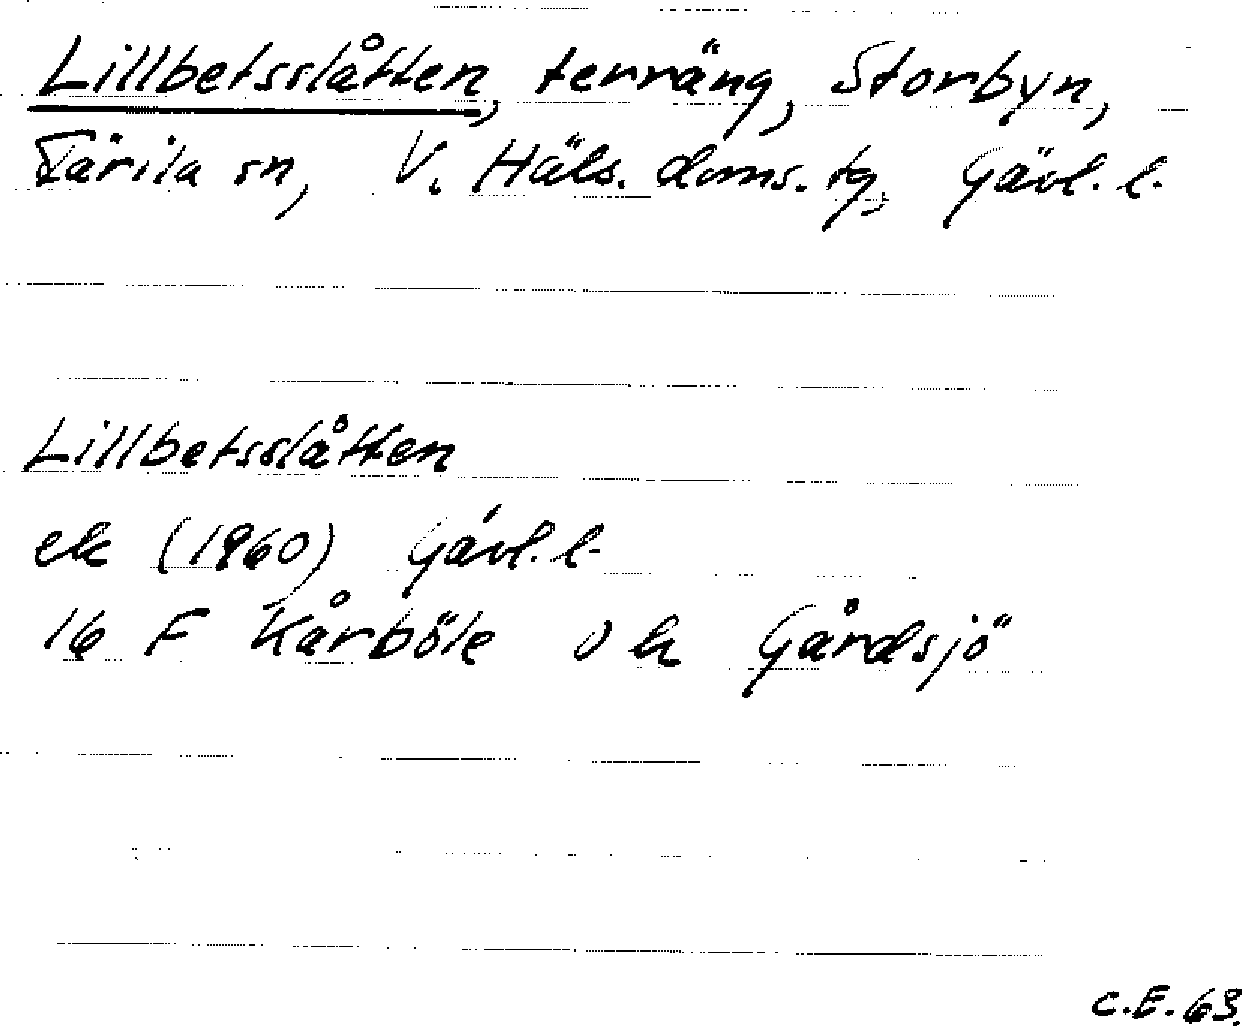 Lillbetsslåtten, terräng, Storbyn,
Färila sn, V. Häls. doms. tg, Gävl. l.
Lillbetsslåtten
ek (1960) Gävl. l.
16 F Kårböle
Gårdsjö
C.E. 63.